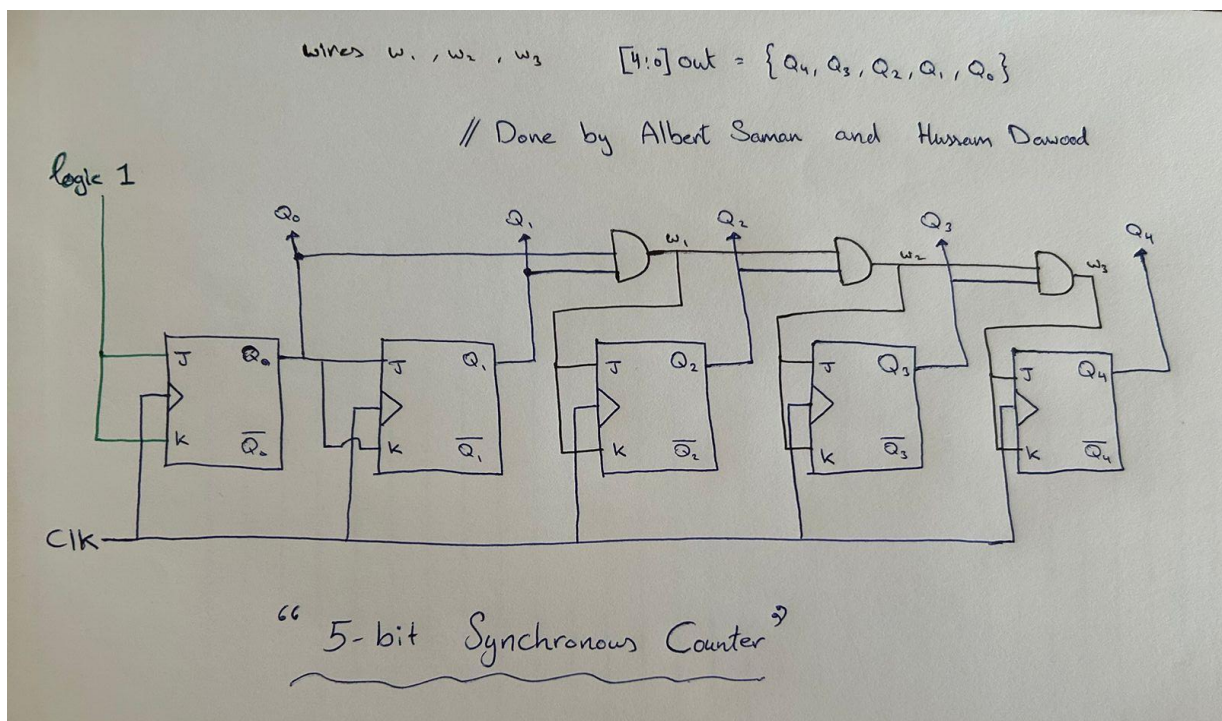 wires w₁ , w₂ , w₃ [4:0] out = { Q₄, Q₃, Q₂, Q₁, Q₀}
// Done by Albert Saman and Hussam Dawood
logic 1
Q₀ Q₁ w₁ Q₂ w₂ Q₃ w₃ Q₄
J Q₀ J Q₁ J Q₂ J Q₃ J Q₄
K Q̅₀ K Q̅₁ K Q̅₂ K Q̅₃ K Q̅₄
Clk
“ 5-bit Synchronous Counter ”